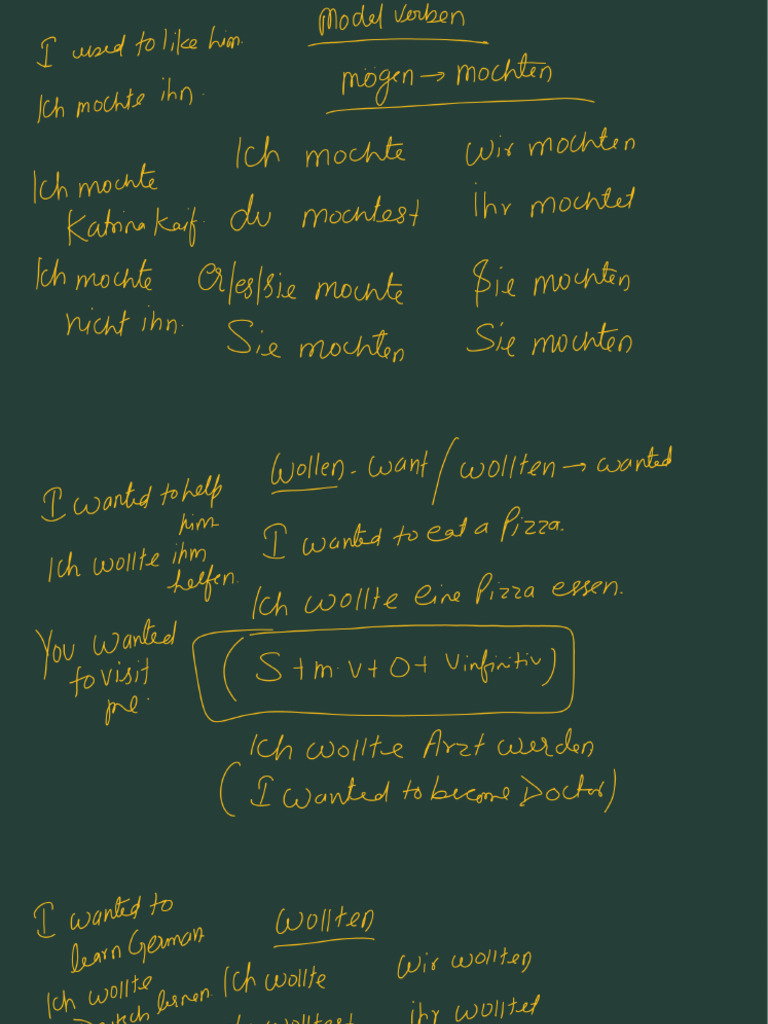 Model verben
I used to like him.
mögen → mochten
Ich mochte ihn.
Ich mochte
wir mochten
Ich mochte
Katrina Kaif.
du mochtest
ihr mochtet
Ich mochte
nicht ihn.
er/es/sie mochte
Sie mochten
Sie mochten
Sie mochten
Wollen - want / wollten → wanted
I wanted to help
him
I wanted to eat a Pizza.
Ich wollte ihm
helfen.
Ich wollte eine Pizza essen.
You wanted
to visit
me.
(S + m.v + O + Vinfinitiv)
Ich wollte Arzt werden
(I wanted to become Doctor)
I wanted to
learn German
Wollten
Ich wollte
Deutsch lernen.
Ich wollte
wir wollten
du wolltest
ihr wolltet